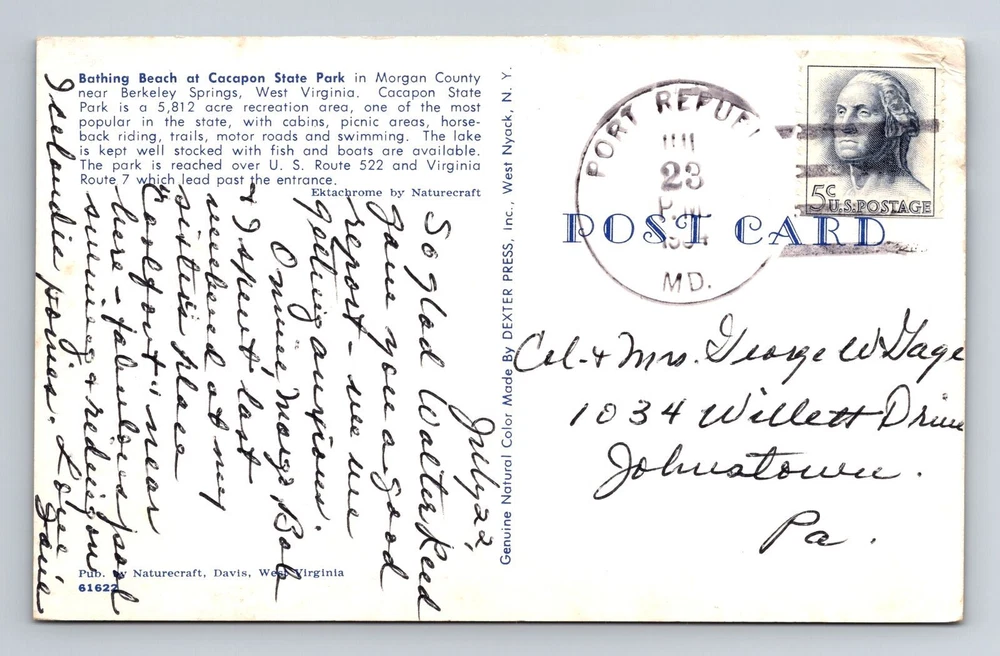 Bathing Beach at Cacapon State Park in Morgan County
near Berkeley Springs, West Virginia. Cacapon State
Park is a 5,812 acre recreation area, one of the most
popular in the state, with cabins, picnic areas, horse-
back riding, trails, motor roads and swimming. The lake
is kept well stocked with fish and boats are available.
The park is reached over U. S. Route 522 and Virginia
Route 7 which lead past the entrance.
Ektachrome by Naturecraft
July 22,
So glad Walter Reed
gave you a good
report - we were
getting anxious.
Marge Bob
& I spent last
weekend at my
sister's place
near
here - fabulous pool
swimming & riding on
Icelandic ponies. Love
Pub. by Naturecraft, Davis, West Virginia
61622
Genuine Natural Color Made By DEXTER PRESS, Inc., West Nyack, N. Y.
POST CARD
PORT REPUBL
23
PM
MD.
5c
U.S. POSTAGE
Col. & Mrs. George W Gage
1034 Willett Drive
Johnstown.
Pa.